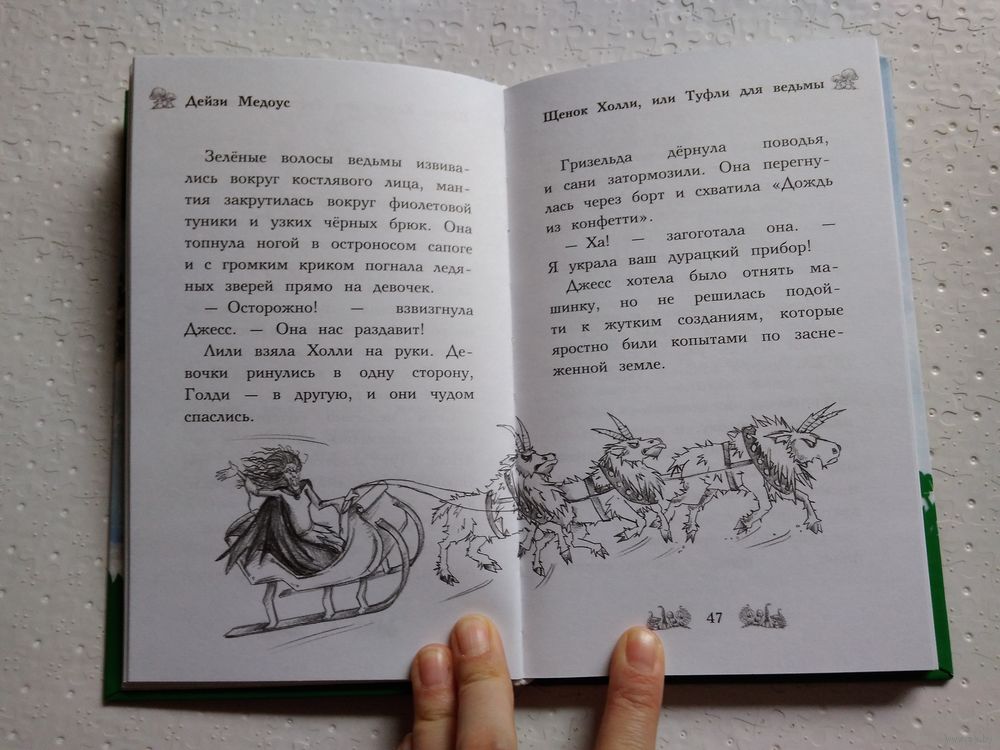 Дейзи Медоус
Зелёные волосы ведьмы извива-
лись вокруг костлявого лица, ман-
тия закрутилась вокруг фиолетовой
туники и узких чёрных брюк. Она
топнула ногой в остроносом сапоге
и с громким криком погнала ледя-
ных зверей прямо на девочек.
— Осторожно! — взвизгнула
Джесс. — Она нас раздавит!
Лили взяла Холли на руки. Де-
вочки ринулись в одну сторону,
Голди — в другую, и они чудом
спаслись.
Щенок Холли, или Туфли для ведьмы
Гризельда дёрнула поводья,
и сани затормозили. Она перегну-
лась через борт и схватила «Дождь
из конфетти».
— Ха! — загоготала она. —
Я украла ваш дурацкий прибор!
Джесс хотела было отнять ма-
шинку, но не решилась подой-
ти к жутким созданиям, которые
яростно били копытами по засне-
женной земле.
47